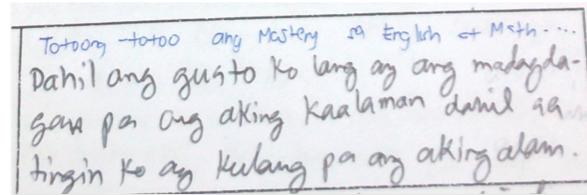 Totoong -totoo ang Mastery sa English at Math....
Dahil ang gusto ko lang ay ang madagda-
gan pa ang aking kaalaman dahil sa
tingin ko ay kulang pa ang aking alam.